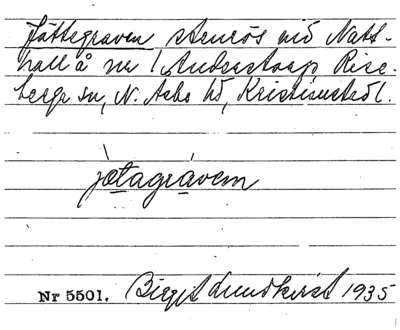 Jättegraven, stenrös vid Natt-
hall å nr 1, Anderstorp Rise-
berga sn, N. Åsbo hd, Kristianst. l.
jætagravem
Nr 5501. Birgit Lundkvist 1935